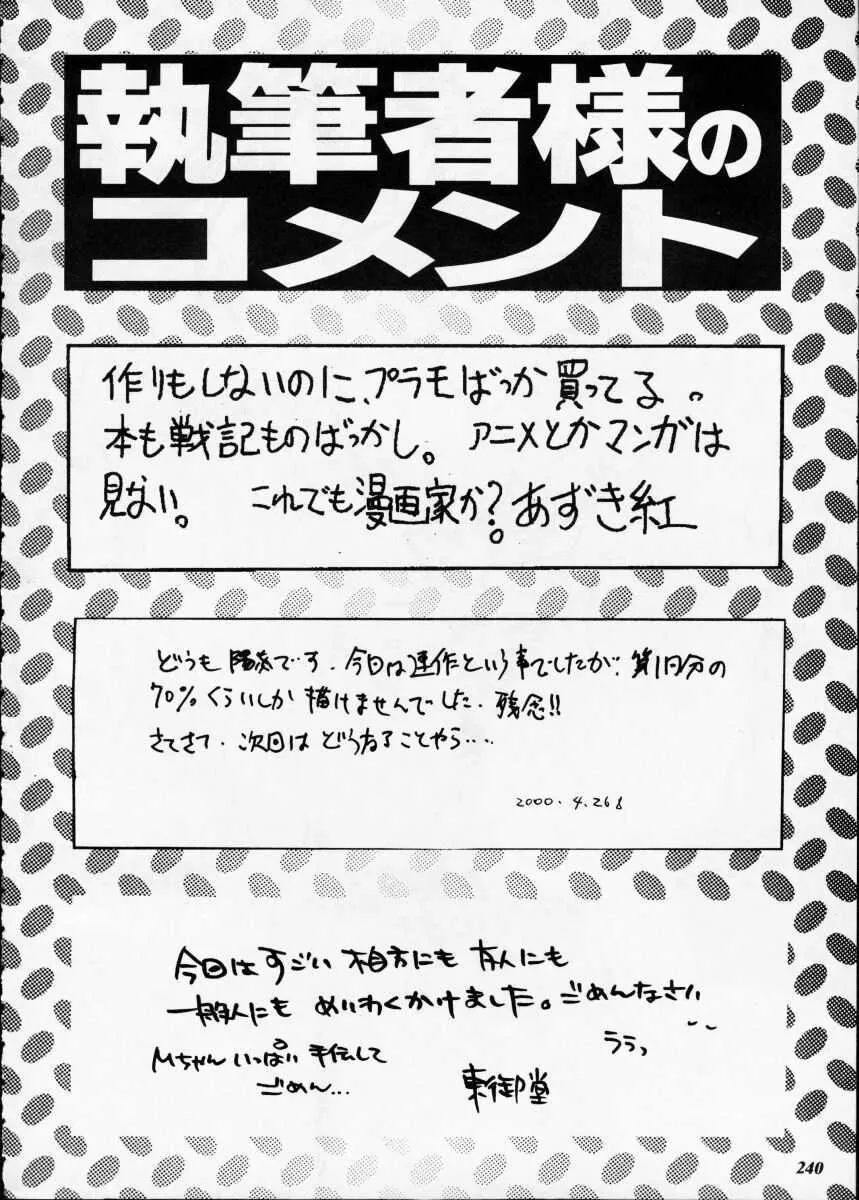 執筆者様の
コメント
作りもしないのに、プラモばっか買ってる。
本も戦記ものばっかし。アニメとかマンガは
見ない。これでも漫画家か?あずき紅
どうも です。今回は連作という事でしたが、第1回分の
70%くらいしか描けませんでした。残念!!
さてさて、次回はどうなることやら‥‥
2000.4.26
今回はすごい相方にも友人にも
一般人にもめいわくかけました。ごめんなさい
ううっ
Mちゃんいっぱい手伝して
ごめん...
東御堂
240